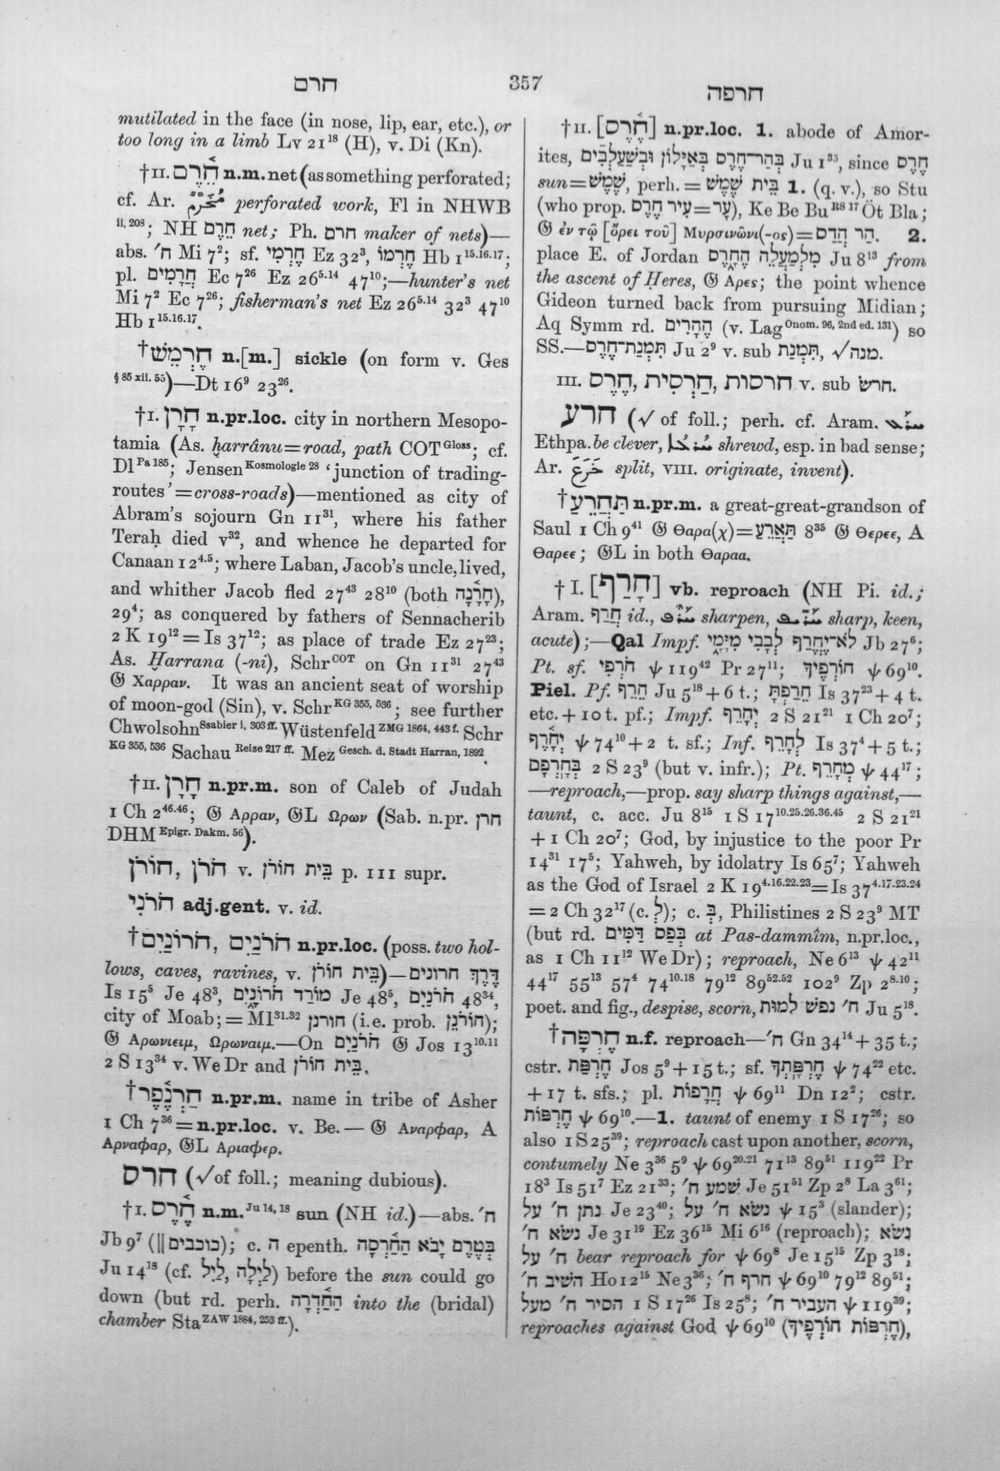 חרם
357
חרפה
mutilated in the face (in nose, lip, ear, etc.), or
too long in a limb Lv 21¹⁸ (H), v. Di (Kn).
†II. חֵ֫רֶם n.m. net (as something perforated;
cf. Ar. perforated work, Fl in NHWB
ii, 208; NH חֵרֶם net; Ph. חרם maker of nets)—
abs. ח׳ Mi 7²; sf. חֶרְמִי Ez 32³, חֶרְמוֹ Hb 1¹⁵·¹⁶·¹⁷;
pl. חֲרָמִים Ec 7²⁶ Ez 26⁵·¹⁴ 47¹⁰;—hunter's net
Mi 7² Ec 7²⁶; fisherman's net Ez 26⁵·¹⁴ 32³ 47¹⁰
Hb 1¹⁵·¹⁶·¹⁷.
†חֶרְמֵשׁ n.[m.] sickle (on form v. Ges
§ 85 xii. 55)—Dt 16⁹ 23²⁶.
†I. חָרָן n.pr.loc. city in northern Mesopo-
tamia (As. ḫarrânu=road, path COT Gloss; cf.
Dl Pa 185; Jensen Kosmologie 28 ‘junction of trading-
routes’=cross-roads)—mentioned as city of
Abram's sojourn Gn 11³¹, where his father
Teraḥ died v³², and whence he departed for
Canaan 12⁴·⁵; where Laban, Jacob's uncle, lived,
and whither Jacob fled 27⁴³ 28¹⁰ (both חָרָ֫נָה),
29⁴; as conquered by fathers of Sennacherib
2 K 19¹²=Is 37¹²; as place of trade Ez 27²³;
As. Ḫarrana (-ni), Schr COT on Gn 11³¹ 27⁴³
𝔊 Χαρραν. It was an ancient seat of worship
of moon-god (Sin), v. Schr KG 355, 536; see further
Chwolsohn Ssabier i, 303 ff. Wüstenfeld ZMG 1864, 443 f. Schr
KG 355, 536 Sachau Reise 217 ff. Mez Gesch. d. Stadt Harran, 1892.
†II. חָרָן n.pr.m. son of Caleb of Judah
1 Ch 2⁴⁶·⁴⁶; 𝔊 Αρραν, 𝔊L Ωρων (Sab. n.pr. חרן
DHM Epigr. Dakm. 56).
חֹרֹן, חוֹרֹן v. בֵּית חוֹרֹן p. III supr.
חֹרֹנִי adj.gent. v. id.
†חֹרֹנַיִם, חוֹרֹנַיִם n.pr.loc. (poss. two hol-
lows, caves, ravines, v. בֵּית חוֹרֹן)—דֶּרֶךְ חרונים
Is 15⁵ Je 48³, מוֹרַד חֹרוֹנָ֑יִם Je 48⁵, חֹרֹנַיִם 48³⁴,
city of Moab;=MI³¹·³² חורנן (i.e. prob. חוֹרֹנֵן);
𝔊 Αρωνιειμ, Ωρωναιμ.—On חֹרֹנַיִם 𝔊 Jos 13¹⁰·¹¹
2 S 13³⁴ v. We Dr and בֵּית חוֹרֹן.
†חַרְנֶ֫פֶר n.pr.m. name in tribe of Asher
1 Ch 7³⁶=n.pr.loc. v. Be.—𝔊 Αναρφαρ, A
Αρναφαρ, 𝔊L Αριαφερ.
חרס (√of foll.; meaning dubious).
†I. חֶ֫רֶס n.m. Ju 14, 18 sun (NH id.)—abs. ח׳
Jb 9⁷ (‖כוכבים); c. ה epenth. בְּטֶרֶם יָבֹא הַחַ֫רְסָה
Ju 14¹⁸ (cf. לַיִל, לַיְלָה) before the sun could go
down (but rd. perh. הַחַ֫דְרָה into the (bridal)
chamber Sta ZAW 1884, 253 ff.).
†II. [חֶ֫רֶס] n.pr.loc. 1. abode of Amor-
ites, בְּהַר־חֶרֶס בְּאַיָּלוֹן וּבְשַׁעַלְבִים Ju 1³⁵, since חֶרֶס
sun=שֶׁמֶשׁ, perh.=בֵּית שֶׁמֶשׁ 1. (q. v.), so Stu
(who prop. עָר=עִיר חֶרֶס), Ke Be Bu RS 17 Öt Bla;
𝔊 ἐν τῷ [ὄρει τοῦ] Μυρσινῶνι(-ος)=הַר הֲדַס. 2.
place E. of Jordan מִלְמַעֲלֵה הֶחָ֑רֶס Ju 8¹³ from
the ascent of Ḥeres, 𝔊 Αρες; the point whence
Gideon turned back from pursuing Midian;
Aq Symm rd. הֶהָרִים (v. Lag Onom. 96, 2nd ed. 131) so
SS.—תִּמְנַת־חֶרֶס Ju 2⁹ v. sub תִּמְנַת, √מנה.
III. חֶרֶס, חַרְסִית, חרסות v. sub חרשׂ.
חרע (√ of foll.; perh. cf. Aram.
Ethpa. be clever, shrewd, esp. in bad sense;
Ar. خَرَعَ split, VIII. originate, invent).
†תַּחְרֵעַ n.pr.m. a great-great-grandson of
Saul 1 Ch 9⁴¹ 𝔊 Θαρα(χ)=תַּאְרֵעַ 8³⁵ 𝔊 Θερεε, A
Θαρεε; 𝔊L in both Θαραα.
†I. [חָרַף] vb. reproach (NH Pi. id.;
Aram. חֲרַף id., sharpen, sharp, keen,
acute);—Qal Impf. לֹא־יֶחֱרַף לְבָבִי מִיָּמָ֑י Jb 27⁶;
Pt. sf. חֹרְפִי ψ 119⁴² Pr 27¹¹; חוֹרְפֶיךָ ψ 69¹⁰.
Piel. Pf. חֵרֵף Ju 5¹⁸+6 t.; חֵרַפְתָּ Is 37²³+4 t.
etc.+10 t. pf.; Impf. יְחָרֵף 2 S 21²¹ 1 Ch 20⁷;
יְחָ֫רֶף ψ 74¹⁰+2 t. sf.; Inf. לְחָרֵף Is 37⁴+5 t.;
בְּחָרְפָם 2 S 23⁹ (but v. infr.); Pt. מְחָרֵף ψ 44¹⁷;
—reproach,—prop. say sharp things against,—
taunt, c. acc. Ju 8¹⁵ 1 S 17¹⁰·²⁵·²⁶·³⁶·⁴⁵ 2 S 21²¹
+1 Ch 20⁷; God, by injustice to the poor Pr
14³¹ 17⁵; Yahweh, by idolatry Is 65⁷; Yahweh
as the God of Israel 2 K 19⁴·¹⁶·²²·²³=Is 37⁴·¹⁷·²³·²⁴
=2 Ch 32¹⁷ (c. לְ); c. בְּ, Philistines 2 S 23⁹ MT
(but rd. בְּפַס דַּמִּים at Pas-dammîm, n.pr.loc.,
as 1 Ch 11¹² We Dr); reproach, Ne 6¹³ ψ 42¹¹
44¹⁷ 55¹³ 57⁴ 74¹⁰·¹⁸ 79¹² 89⁵²·⁵² 102⁹ Zp 2⁸·¹⁰;
poet. and fig., despise, scorn, ח׳ נפשׁ למות Ju 5¹⁸.
†חֶרְפָּה n.f. reproach—ח׳ Gn 34¹⁴+35 t.;
cstr. חֶרְפַּת Jos 5⁹+15 t.; sf. חֶרְפָּתְךָ ψ 74²² etc.
+17 t. sfs.; pl. חֲרָפוֹת ψ 69¹¹ Dn 12²; cstr.
חֶרְפּוֹת ψ 69¹⁰.—1. taunt of enemy 1 S 17²⁶; so
also 1 S 25³⁹; reproach cast upon another, scorn,
contumely Ne 3³⁶ 5⁹ ψ 69²⁰·²¹ 71¹³ 89⁵¹ 119²² Pr
18³ Is 51⁷ Ez 21³³; שׁמע ח׳ Je 51⁵¹ Zp 2⁸ La 3⁶¹;
נתן ח׳ על Je 23⁴⁰; נשׂא ח׳ על ψ 15³ (slander);
נשׂא ח׳ Je 31¹⁹ Ez 36¹⁵ Mi 6¹⁶ (reproach); נשׂא
ח׳ על bear reproach for ψ 69⁸ Je 15¹⁵ Zp 3¹⁸;
השׁיב ח׳ Ho 12¹⁵ Ne 3³⁶; חרף ח׳ ψ 69¹⁰ 79¹² 89⁵¹;
הסיר ח׳ מעל 1 S 17²⁶ Is 25⁸; העביר ח׳ ψ 119³⁹;
reproaches against God ψ 69¹⁰ (חֶרְפּוֹת חוֹרְפֶיךָ),